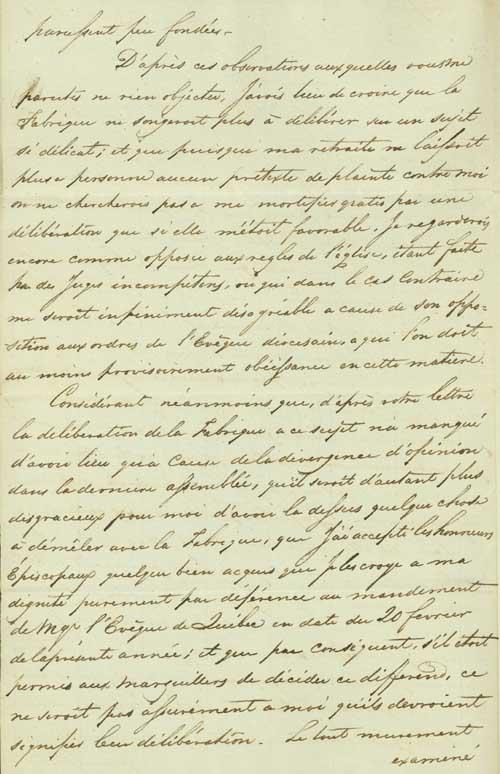 parussent peu fondées.
D'après ces observations auxquelles vous me
parutes ne rien objecter, J'avois lieu de croire que la
Fabrique ne songeroit plus à délibérer sur un sujet
si délicat; et que puisque ma retraite ne laissoit
plus a personne aucun prétexte de plainte contre moi
on ne chercherois pas a me mortifier gratis par une
délibération que si elle m'étoit favorable, Je regarderois
encore comme opposée aux regles de l'Eglise, étant faite
par des Juges incompétens, ou qui dans le cas Contraire
me seroit infiniment désagréable a cause de son oppo-
sition aux ordres de l'Evêque diocésain, a qui l'on doit
au moins provisoirement obéissance en cette matiere.
Considérant néanmoins que, d'après votre lettre
la délibération de la Fabrique a ce sujet n'a manqué
d'avoir lieu qu'à Cause de la divergence d'opinion
dans la derniere assemblée, qu'il seroit d'autant plus
disgracieux pour moi d'avoir la dessus quelque chose
à démêler avec la Fabrique, que J'ai accepté les honneurs
Episcopaux quelque bien acquis que je les croye a ma
dignité purement par déférence au mandement
de Mgr l'Evêque de Québec en date du 20 février
de la présente année; et que par conséquent, s'il étoit
permis aux marguilliers de décider ce différend, ce
ne seroit pas assurément a moi qu'ils devroient
signifier leur délibération. Le tout murement
examiné